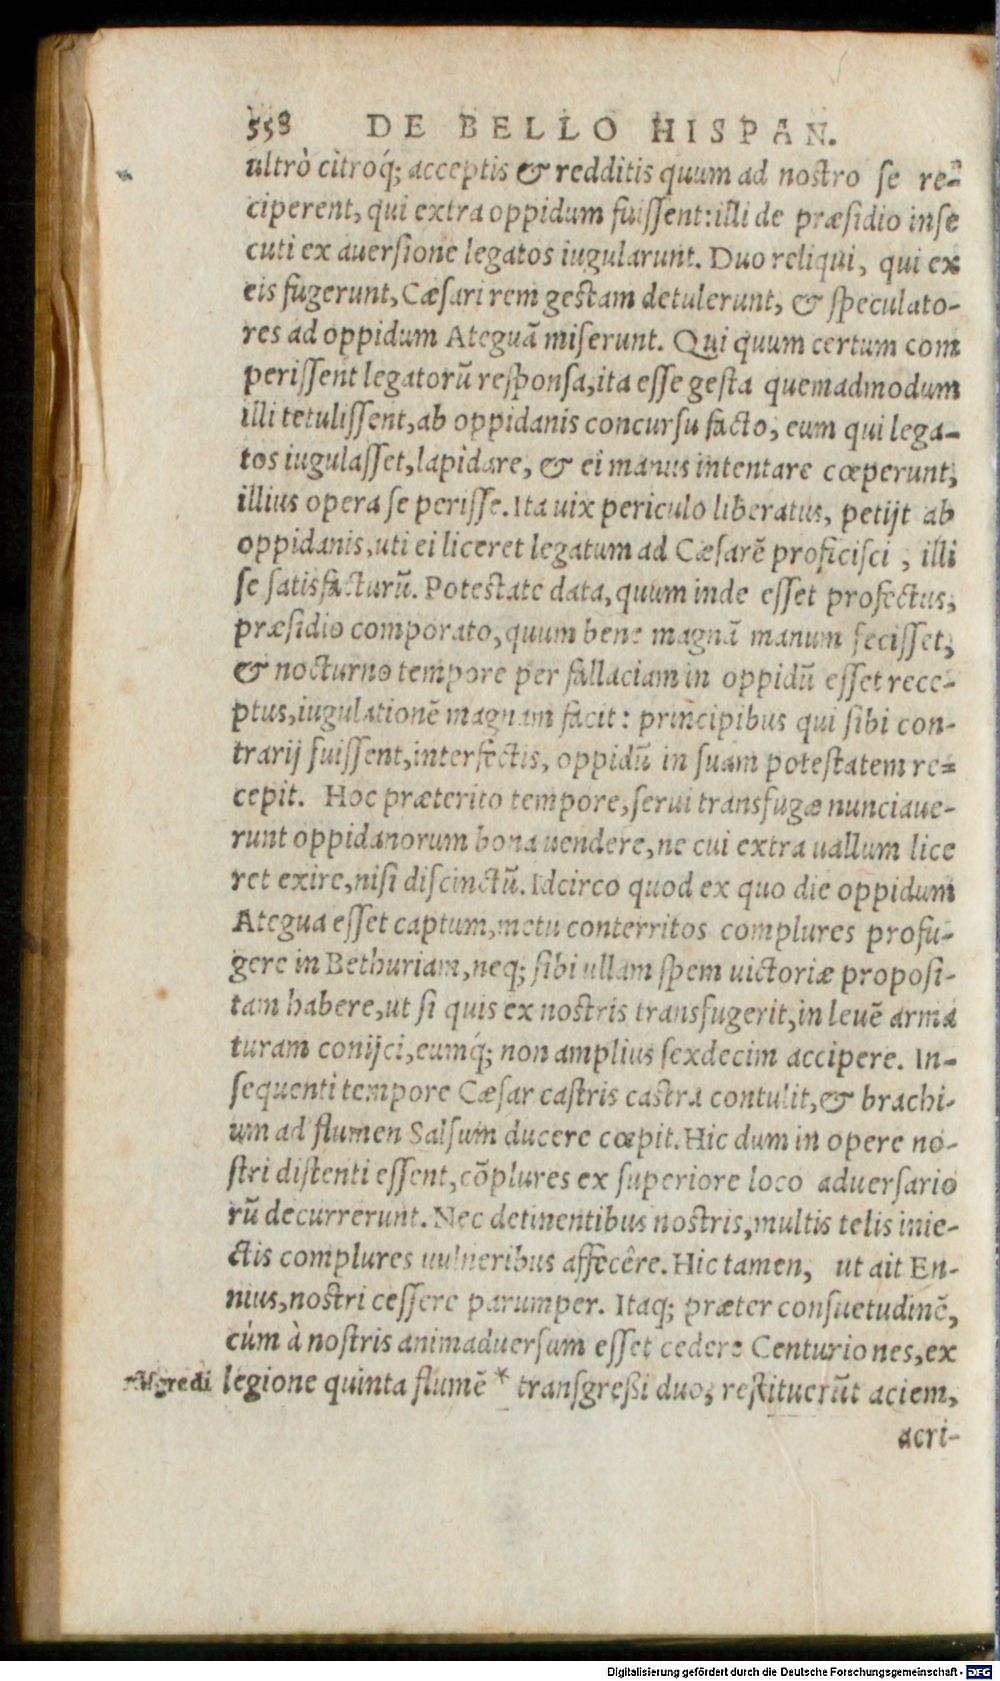 558 DE BELLO HISPAN.
ultrò citroq́; acceptis & redditis quum ad nostro se re-
ciperent, qui extra oppidum fuissent: illi de præsidio inse
cuti ex auersione legatos iugularunt. Duo reliqui, qui ex
eis fugerunt, Cæsari rem gestam detulerunt, & speculato-
res ad oppidum Ateguā miserunt. Qui quum certum com
perissent legatorū responsa, ita esse gesta quemadmodum
illi tetulissent, ab oppidanis concursu facto, eum qui lega-
tos iugulasset, lapidare, & ei manus intentare cœperunt,
illius opera se perisse. Ita uix periculo liberatus, petijt ab
oppidanis, uti ei liceret legatum ad Cæsarē proficisci, illi
se satisfacturū. Potestate data, quum inde esset profectus,
præsidio comporato, quum bene magnā manum fecisset,
& nocturno tempore per fallaciam in oppidū esset rece-
ptus, iugulationē magnam facit: principibus qui sibi con-
trarij fuissent, interfectis, oppidū in suam potestatem re-
cepit. Hoc præterito tempore, serui transfugæ nunciaue-
runt oppidanorum bona uendere, ne cui extra uallum lice
ret exire, nisi discinctū. Idcirco quod ex quo die oppidum
Ategua esset captum, metu conterritos complures profu-
gere in Bethuriam, neq; sibi ullam spem uictoriæ proposi-
tam habere, ut si quis ex nostris transfugerit, in leuē arma
turam conijci, eumq́; non amplius sexdecim accipere. In-
sequenti tempore Cæsar castris castra contulit, & brachi-
um ad flumen Salsum ducere cœpit. Hic dum in opere no-
stri distenti essent, cōplures ex superiore loco aduersario
rū decurrerunt. Nec detinentibus nostris, multis telis inie-
ctis complures uulneribus affecêre. Hic tamen, ut ait En-
nius, nostri cessere parumper. Itaq; præter consuetudinē,
cùm à nostris animaduersum esset cedere Centuriones, ex
legione quinta flumē * transgreßi duo, restituerūt aciem,
acri-
Digitalisierung gefördert durch die Deutsche Forschungsgemeinschaft - DFG